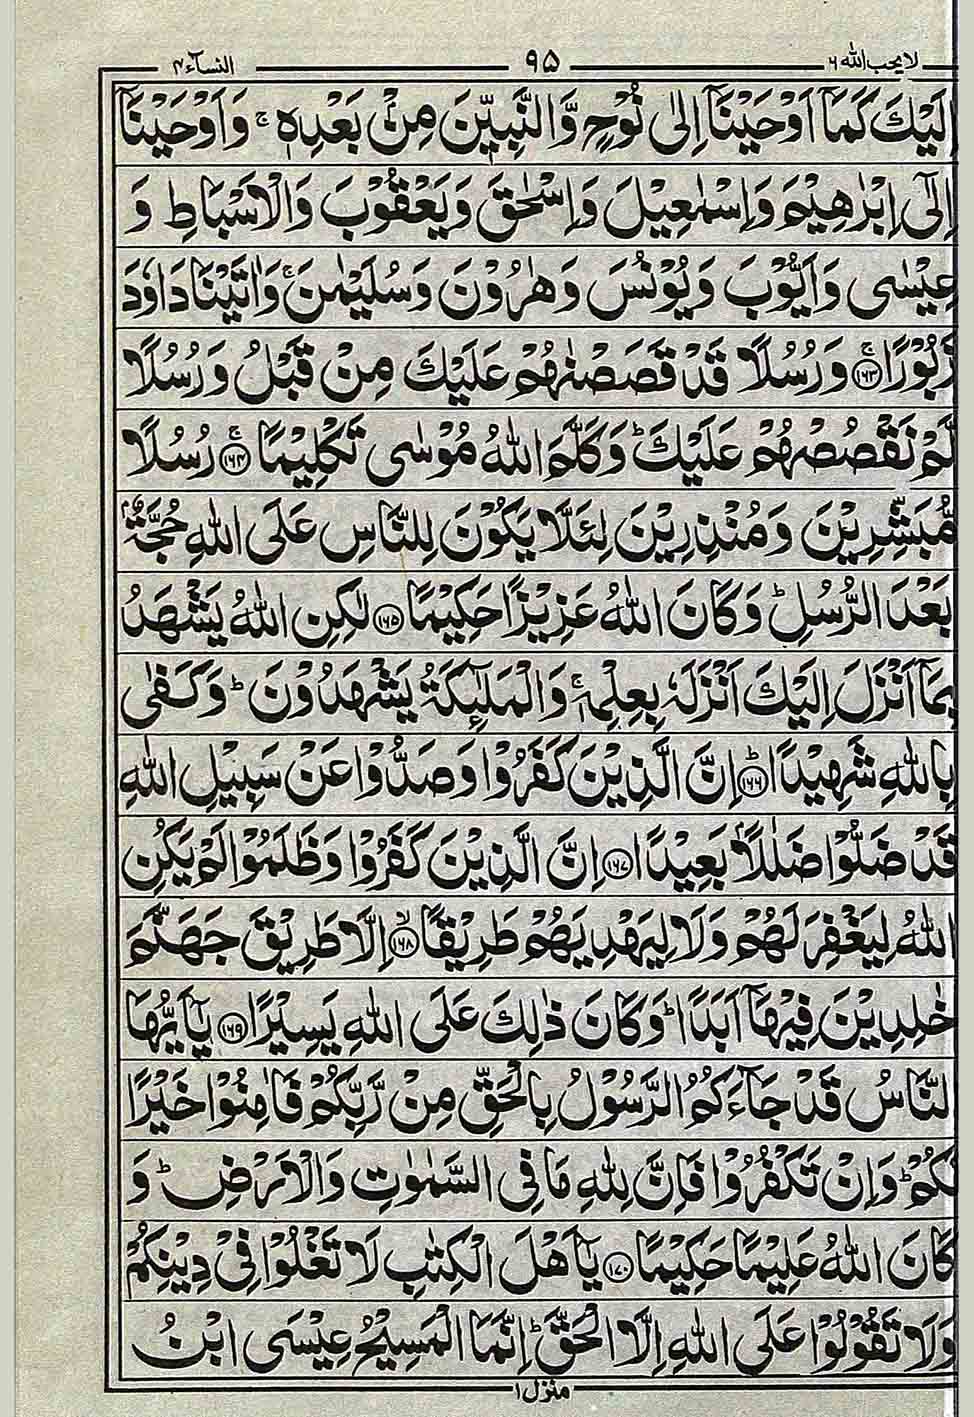 لا یحب الله ۶ ۹۵ النسآء ۴
اِلَيْكَ كَمَاۤ اَوْحَيْنَاۤ اِلٰى نُوْحٍ وَّالنَّبِيّٖنَ مِنْۢ بَعْدِهٖ ۚ وَاَوْحَيْنَاۤ
اِلٰۤى اِبْرٰهِيْمَ وَاِسْمٰعِيْلَ وَاِسْحٰقَ وَيَعْقُوْبَ وَالْاَسْبَاطِ وَ
عِيْسٰى وَاَيُّوْبَ وَيُوْنُسَ وَهٰرُوْنَ وَسُلَيْمٰنَ ۚ وَاٰتَيْنَا دَاوٗدَ
زَبُوْرًا ۚ ﴿۱۶۳﴾ وَرُسُلًا قَدْ قَصَصْنٰهُمْ عَلَيْكَ مِنْ قَبْلُ وَرُسُلًا
لَّمْ نَقْصُصْهُمْ عَلَيْكَ ؕ وَكَلَّمَ اللّٰهُ مُوْسٰى تَكْلِيْمًا ۚ ﴿۱۶۴﴾ رُسُلًا
مُّبَشِّرِيْنَ وَمُنْذِرِيْنَ لِئَلَّا يَكُوْنَ لِلنَّاسِ عَلَى اللّٰهِ حُجَّةٌۢ
بَعْدَ الرُّسُلِ ؕ وَكَانَ اللّٰهُ عَزِيْزًا حَكِيْمًا ﴿۱۶۵﴾ لٰكِنِ اللّٰهُ يَشْهَدُ
بِمَاۤ اَنْزَلَ اِلَيْكَ اَنْزَلَهٗ بِعِلْمِهٖ ۚ وَالْمَلٰٓئِكَةُ يَشْهَدُوْنَ ؕ وَكَفٰى
بِاللّٰهِ شَهِيْدًا ؕ ﴿۱۶۶﴾ اِنَّ الَّذِيْنَ كَفَرُوْا وَصَدُّوْا عَنْ سَبِيْلِ اللّٰهِ
قَدْ ضَلُّوْا ضَلٰلًاۢ بَعِيْدًا ﴿۱۶۷﴾ اِنَّ الَّذِيْنَ كَفَرُوْا وَظَلَمُوْا لَمْ يَكُنِ
اللّٰهُ لِيَغْفِرَ لَهُمْ وَلَا لِيَهْدِيَهُمْ طَرِيْقًا ۙ ﴿۱۶۸﴾ اِلَّا طَرِيْقَ جَهَنَّمَ
خٰلِدِيْنَ فِيْهَاۤ اَبَدًا ؕ وَكَانَ ذٰلِكَ عَلَى اللّٰهِ يَسِيْرًا ﴿۱۶۹﴾ يٰۤاَيُّهَا
النَّاسُ قَدْ جَآءَكُمُ الرَّسُوْلُ بِالْحَقِّ مِنْ رَّبِّكُمْ فَاٰمِنُوْا خَيْرًا
لَّكُمْ ؕ وَاِنْ تَكْفُرُوْا فَاِنَّ لِلّٰهِ مَا فِى السَّمٰوٰتِ وَالْاَرْضِ ؕ وَ
كَانَ اللّٰهُ عَلِيْمًا حَكِيْمًا ﴿۱۷۰﴾ يٰۤاَهْلَ الْكِتٰبِ لَا تَغْلُوْا فِىْ دِيْنِكُمْ
وَلَا تَقُوْلُوْا عَلَى اللّٰهِ اِلَّا الْحَقَّ ؕ اِنَّمَا الْمَسِيْحُ عِيْسَى ابْنُ
منزل ۱